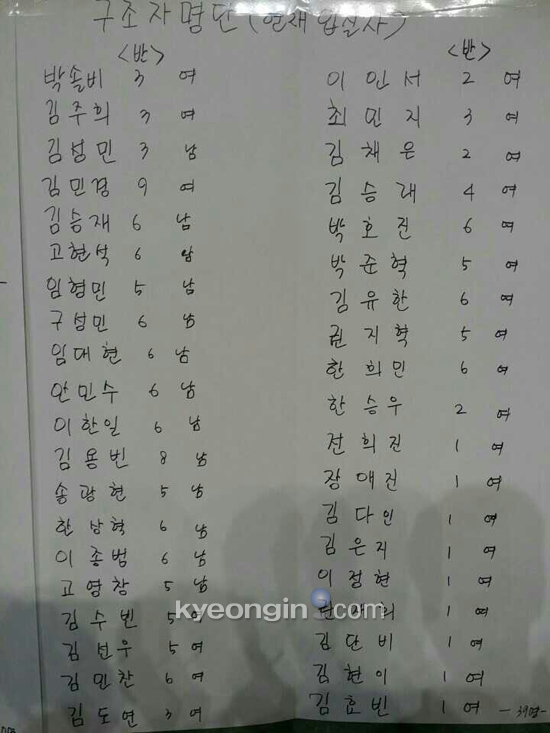 구조자명단 (현재 입실자)
<반>
박솔비 3 여
김주희 3 여
김성민 3 남
김민경 9 여
김승재 6 남
고현석 6 남
임형민 5 남
구성민 6 남
임대현 6 남
안민수 6 남
이한일 6 남
김용빈 8 남
송광현 5 남
한상혁 6 남
이종범 6 남
고영창 5 남
김수빈 5 여
김선우 5 여
김민찬 6 여
김도연 3 여
<반>
이인서 2 여
최민지 3 여
김채은 2 여
김승래 4 여
박호진 6 여
박준혁 5 여
김유한 6 여
권지혁 5 여
한희민 6 여
한승우 2 여
전희진 1 여
장애진 1 여
김다인 1 여
김은지 1 여
이정현 1 여
1 여
김단비 1 여
김현이 1 여
김효빈 1 여
-39명-
kyeongin.com